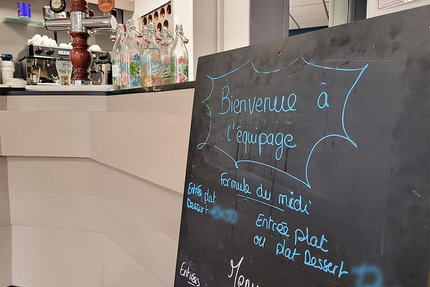 Bienvenue à
l'équipage
Formule du midi
Entrée plat
Dessert
Entrée plat
ou plat Dessert
Entrées
Menu